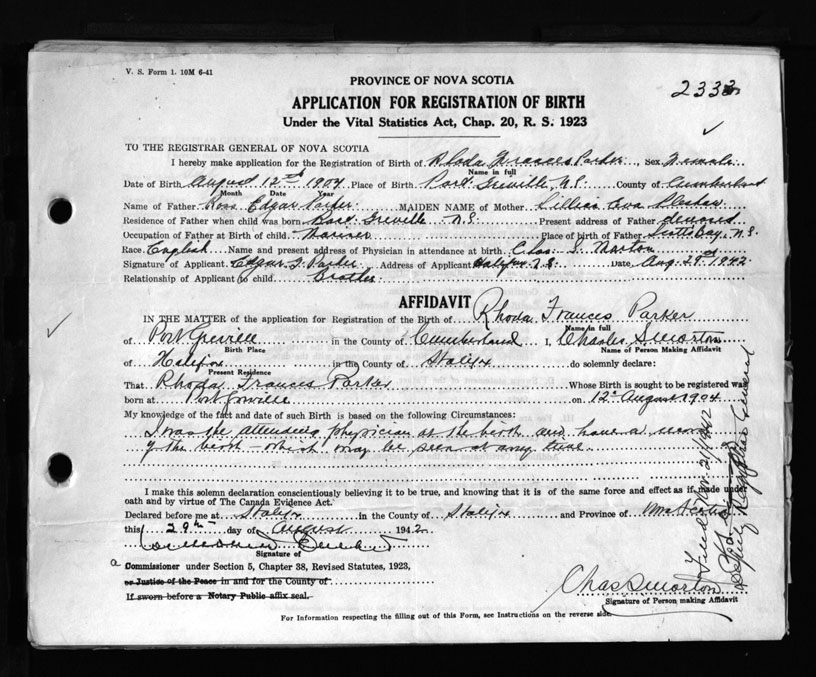 V. S. Form 1. 10M 6-41
PROVINCE OF NOVA SCOTIA
2333
APPLICATION FOR REGISTRATION OF BIRTH
Under the Vital Statistics Act, Chap. 20, R. S. 1923
TO THE REGISTRAR GENERAL OF NOVA SCOTIA
I hereby make application for the Registration of Birth of Rhoda Frances Parker, Sex Female
Name in full
Date of Birth August 12th 1904 Place of Birth Port Greville, N.S. County of Cumberland
Month Date Year
Name of Father Ross Edgar Parker MAIDEN NAME of Mother Lillian Eva
Residence of Father when child was born Port Greville N.S. Present address of Father deceased
Occupation of Father at Birth of child. Mariner Place of birth of Father Scotts Bay, N.S.
Race English Name and present address of Physician in attendance at birth Chas. S. Morton
Signature of Applicant Edgar Parker Address of Applicant Halifax N.S. Date Aug. 29th 1942
Relationship of Applicant to child Brother
AFFIDAVIT
IN THE MATTER of the application for Registration of the Birth of Rhoda Frances Parker
Name in full
of Port Greville in the County of Cumberland I, Charles S Morton
Birth Place Name of Person Making Affidavit
of Halifax in the County of Halifax do solemnly declare:
Present Residence
That Rhoda Frances Parker Whose Birth is sought to be registered was
born at Port Greville on 12th August 1904
My knowledge of the fact and date of such Birth is based on the following Circumstances:
I was the attending physician at the birth and have a record
of the birth which may be seen at any time
I make this solemn declaration conscientiously believing it to be true, and knowing that it is of the same force and effect as if made under
oath and by virtue of The Canada Evidence Act.
Declared before me at Halifax in the County of Halifax and Province of Nova Scotia
this 29th day of August 1942
Signature of
a Commissioner under Section 5, Chapter 38, Revised Statutes, 1923,
or Justice of the Peace in and for the County of
If sworn before a Notary Public affix seal.
Chas S Morton
Signature of Person making Affidavit
For Information respecting the filling out of this Form, see Instructions on the reverse side.
Filed Nov 21/1942
Deputy Registrar General